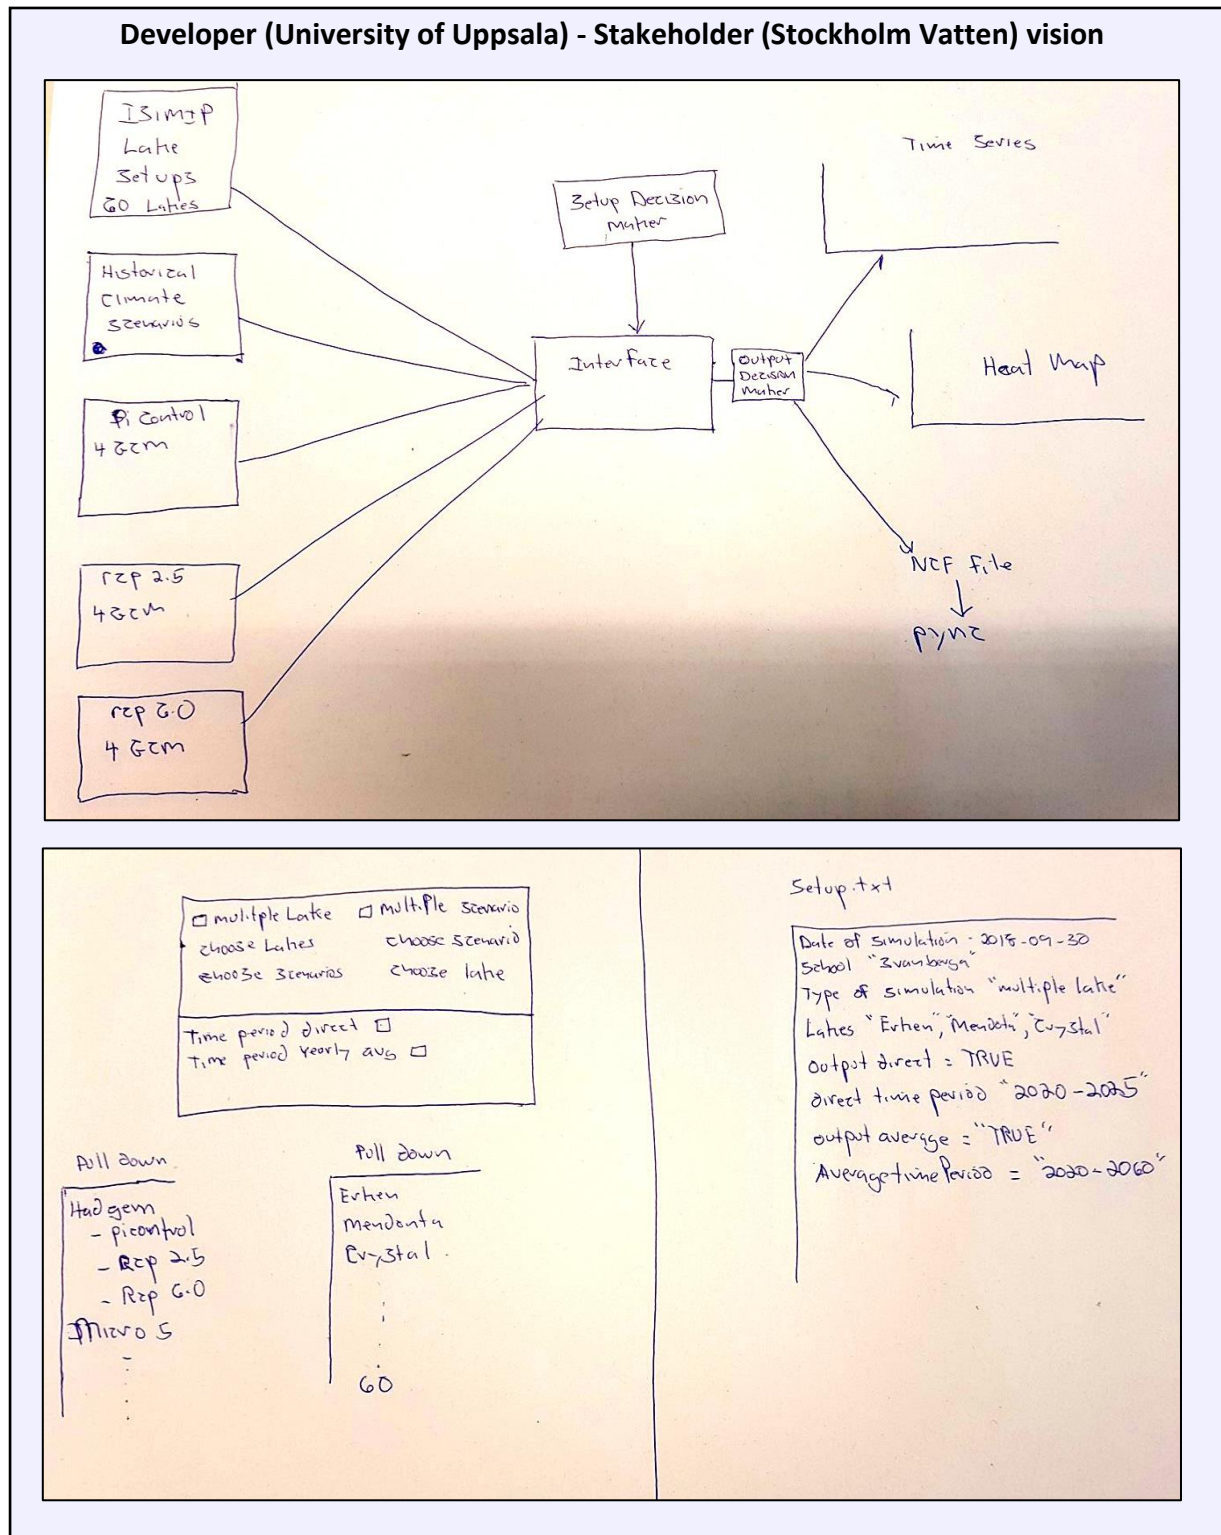 Developer (University of Uppsala) - Stakeholder (Stockholm Vatten) vision
ISIMIP
Lake
Setups
60 Lakes
Historical
Climate
Scenarios
Pi Control
4 GCM
rcp 2.5
4 GCM
rcp 6.0
4 GCM
Setup Decision
Maker
Interface
Output
Decision
Maker
Time Series
Heat Map
NCF file
pync
mulitple Lake
multiple scenario
choose Lakes
choose scenario
choose scenarios
choose lake
Time period direct
Time period Yearly avg
Pull down
Hadgem
- picontrol
- Rcp 2.5
- Rcp 6.0
Micro 5
-
Pull down
Erken
Mendonta
Crystal
60
Setup.txt
Date of simulation - 2018-09-30
School "Svanberga"
Type of simulation "multiple lake"
Lakes "Erken", "Mendota", "Crystal"
Output direct = TRUE
direct time period "2020-2025"
output average = "TRUE"
Average time Period = "2020-2060"